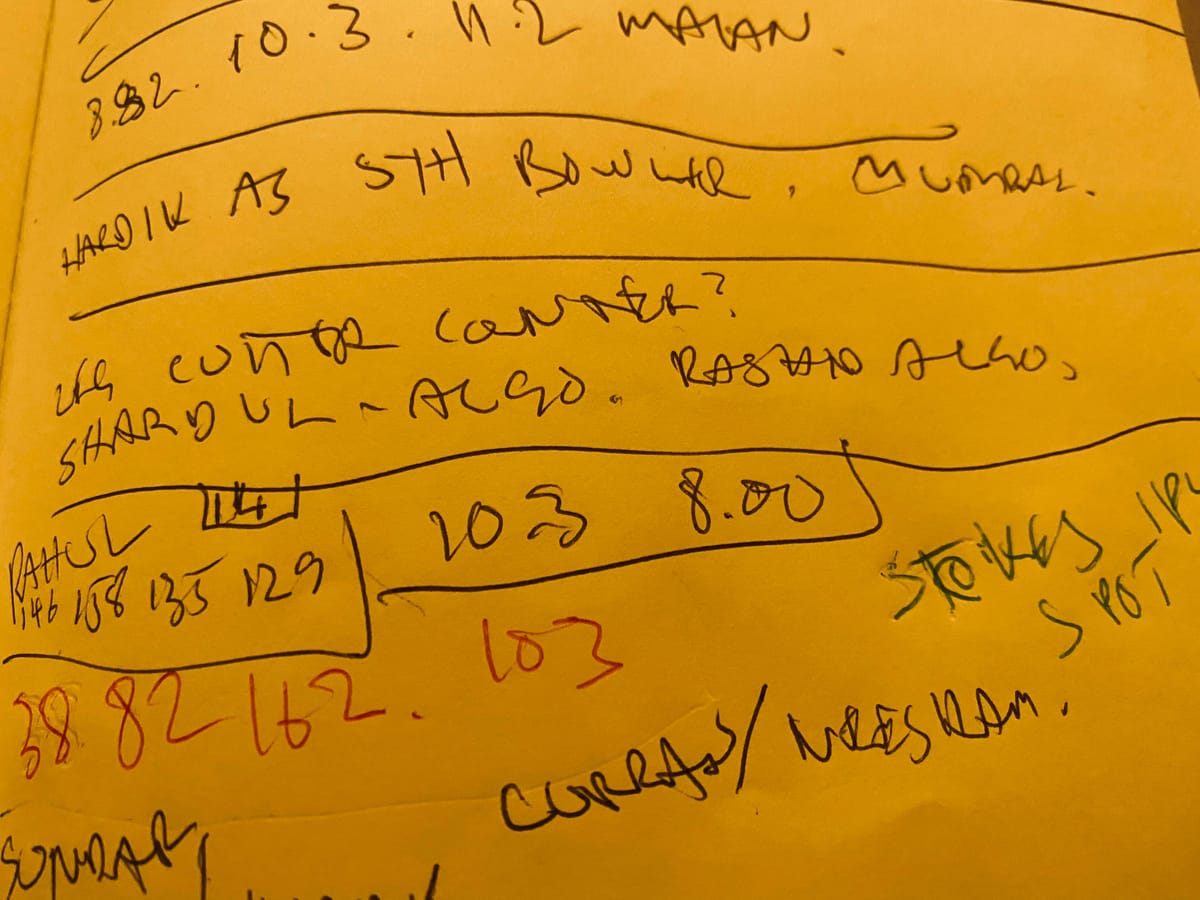 8.82. 10.3. 11.2 MALAN.
HARDIK AS 5TH BOWLER, MUMBAI.
LEG CUTTER COUNTER?
SHARDUL - ALSO. RASHID ALSO,
RAHUL 14 10.3 8.00
146 158 135 129
STOKES IPL
SPOT
38. 82 162. 103
CURRAN/
SUNDAR/